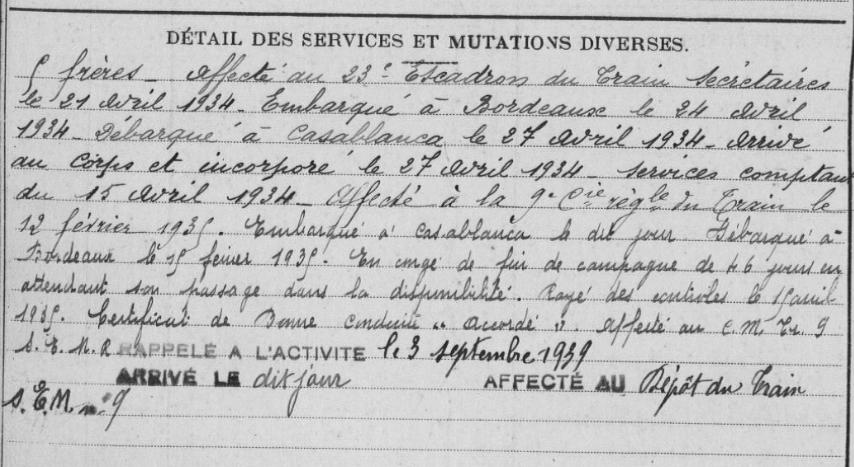 DÉTAIL DES SERVICES ET MUTATIONS DIVERSES.
5 frères - Affecté au 23e Escadron du Train Secrétaires
le 21 Avril 1934 - Embarqué à Bordeaux le 24 Avril
1934 - Débarqué à Casablanca le 27 Avril 1934 - Arrivé
au Corps et incorporé le 27 Avril 1934 - Services comptant
du 15 Avril 1934 - Affecté à la 9e Cie règle du Train le
12 février 1935. Embarqué à Casablanca le dit jour Débarqué à
Bordeaux le 15 février 1935. En congé de fin de campagne de 46 jours en
attendant son passage dans la disponibilité. Rayé des contrôles le 15 avril
1935. Certificat de Bonne conduite "Accordé". Affecté au C.M. Tr. 9
S.E.M.R RAPPELÉ A L'ACTIVITE le 3 septembre 1939
ARRIVÉ LE dit jour AFFECTÉ AU Dépôt du Train
S.E.M. n° 9